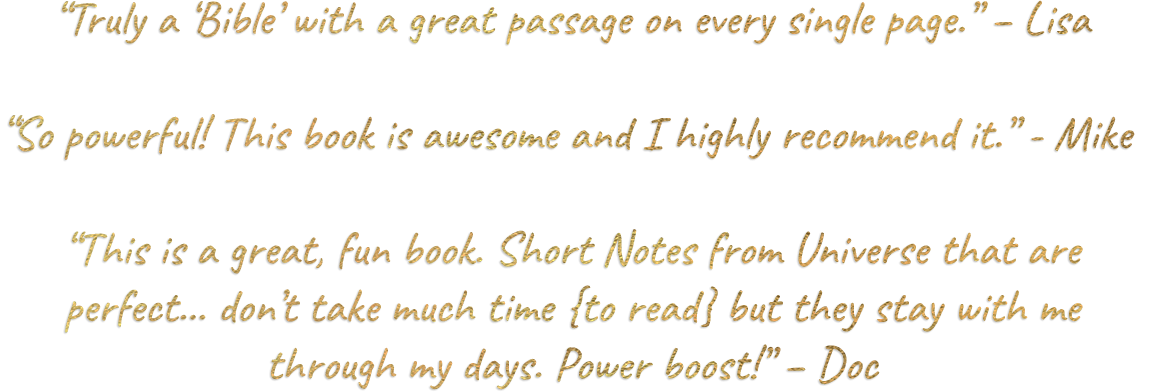 “Truly a ‘Bible’ with a great passage on every single page.” – Lisa
“So powerful! This book is awesome and I highly recommend it.” - Mike
“This is a great, fun book. Short Notes from Universe that are
perfect... don’t take much time {to read} but they stay with me
through my days. Power boost!” – Doc